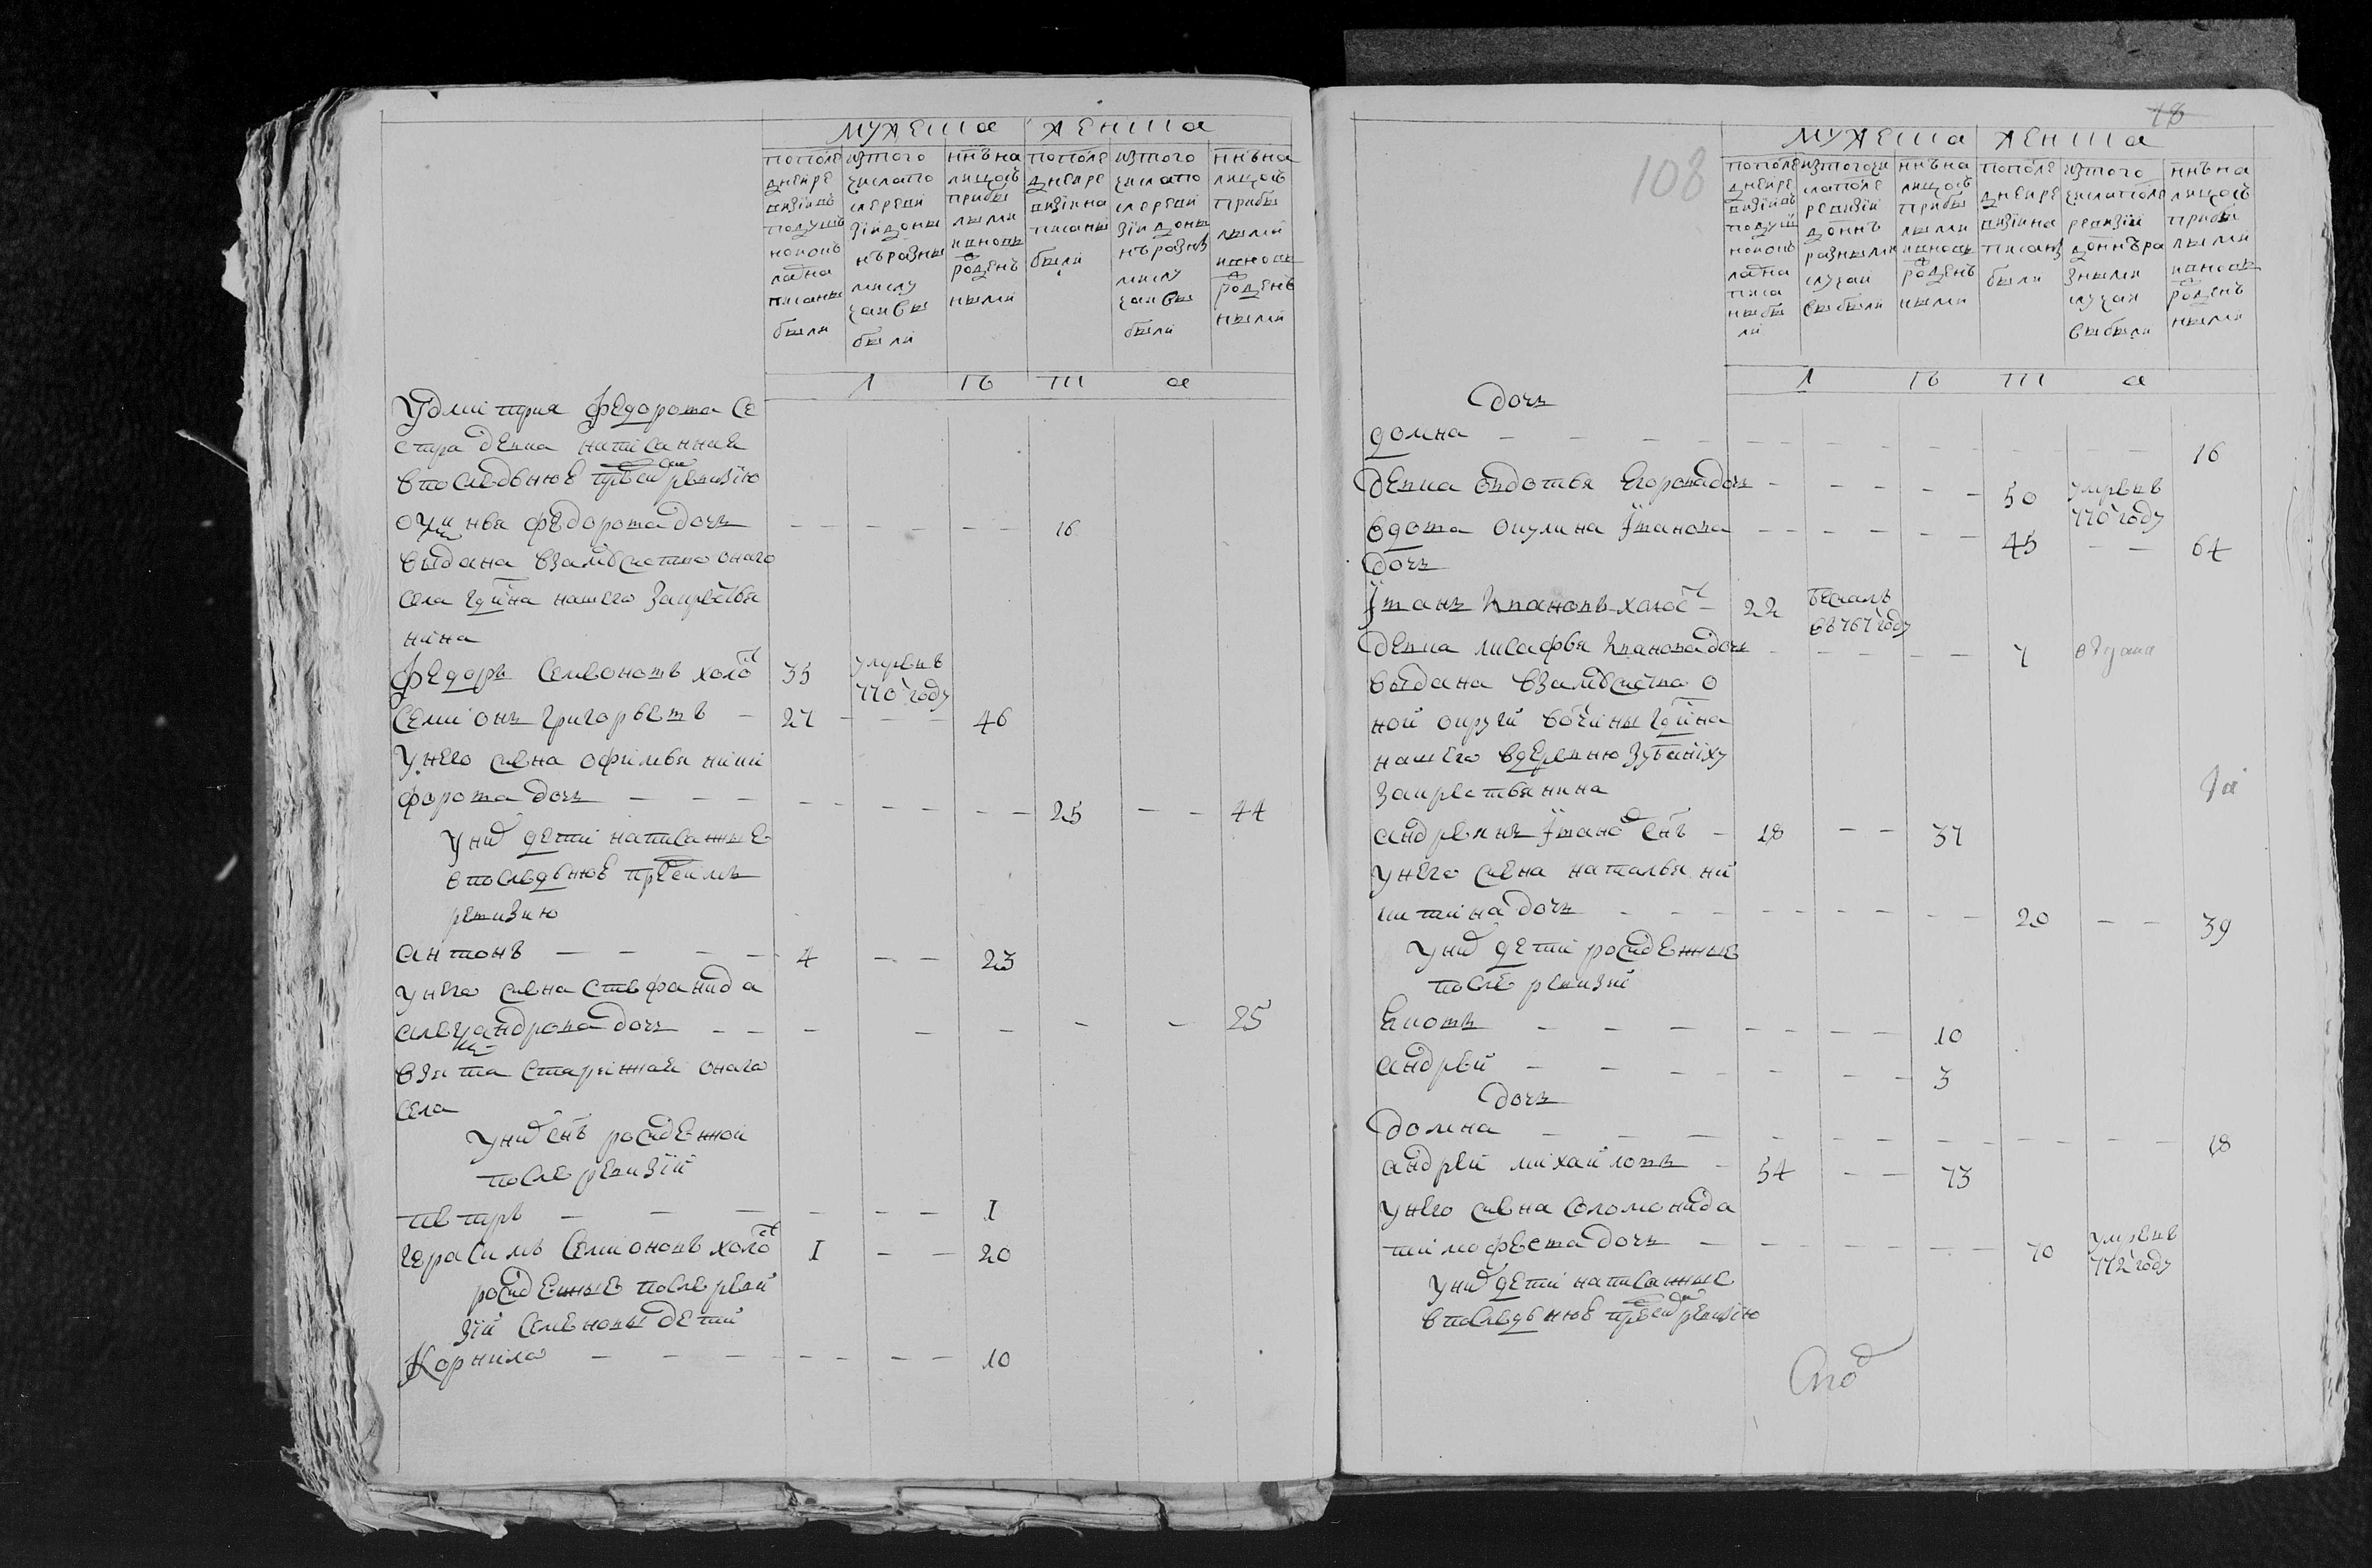 мужеска
женска
по последней ревизии в подушной оклад написаны были
из того числа после ревизии до ныне разными случаи выбыли
ныне на лицо с прибылыми и вновь рожденными
по последней ревизии написаны были
из того числа после ревизии до ныне разными случаи выбыли
ныне на лицо с прибылыми и вновь рожденными
л е т а
У дмитрия федорова се
стра девка написанная
в последнюю пред сим ревизию
федорова дочь - - - 16
выдана в замужство онаго
села гдина нашего за крестья
нина
федоръ семёновъ холост 35 умре в 770 году
семионъ григорьевъ - 27 - - 46
у него жена офимья ники
форова дочь - - - 25 - - 44
у них дети написанные
в последнюю пред симъ
ревизию
антонъ - - - 4 - - 23
у него жена стефанида
александрова дочь - - - 25
взята старинная онаго
села
у них снъ рожденной
после ревизии
петръ - - - 1
герасимъ семионовъ холост 1 - - 20
рожденные после реви
зии семеновы дети
Корнило - - - 10
18
108
мужеска
женска
по последней ревизии в подушной оклад написаны были
из того числа после ревизии до ныне разными случаи выбыли
ныне на лицо с прибылыми и вновь рожденными
по последней ревизии написаны были
из того числа после ревизии до ныне разными случаи выбыли
ныне на лицо с прибылыми и вновь рожденными
л е т а
дочь
домна - - - 16
девка овдотья егорова дочь - - - 50 умре в 770 году
вдова окулина иванова - - - 45 - - 64
дочь
иванъ ивановъ холост - 22 бежалъ в 767 году
девка лисафья иванова дочь - - - 7
выдана в замужства о
ной округи вотчины гдина
нашего в деревню зубаниху
за крестьянина
андреянъ иванов снъ - 18 - - 37
у него жена наталья ни
китина дочь - - - 20 - - 39
у них дети рожденные
после ревизии
- - - 10
андрей - - - 3
дочь
домна - - - 18
андрей михайловъ - 54 - - 73
у него жена соломонида
тимофеева дочь - - - 70 умре в 772 году
у них дети написанные
в последнюю пред сим ревизию